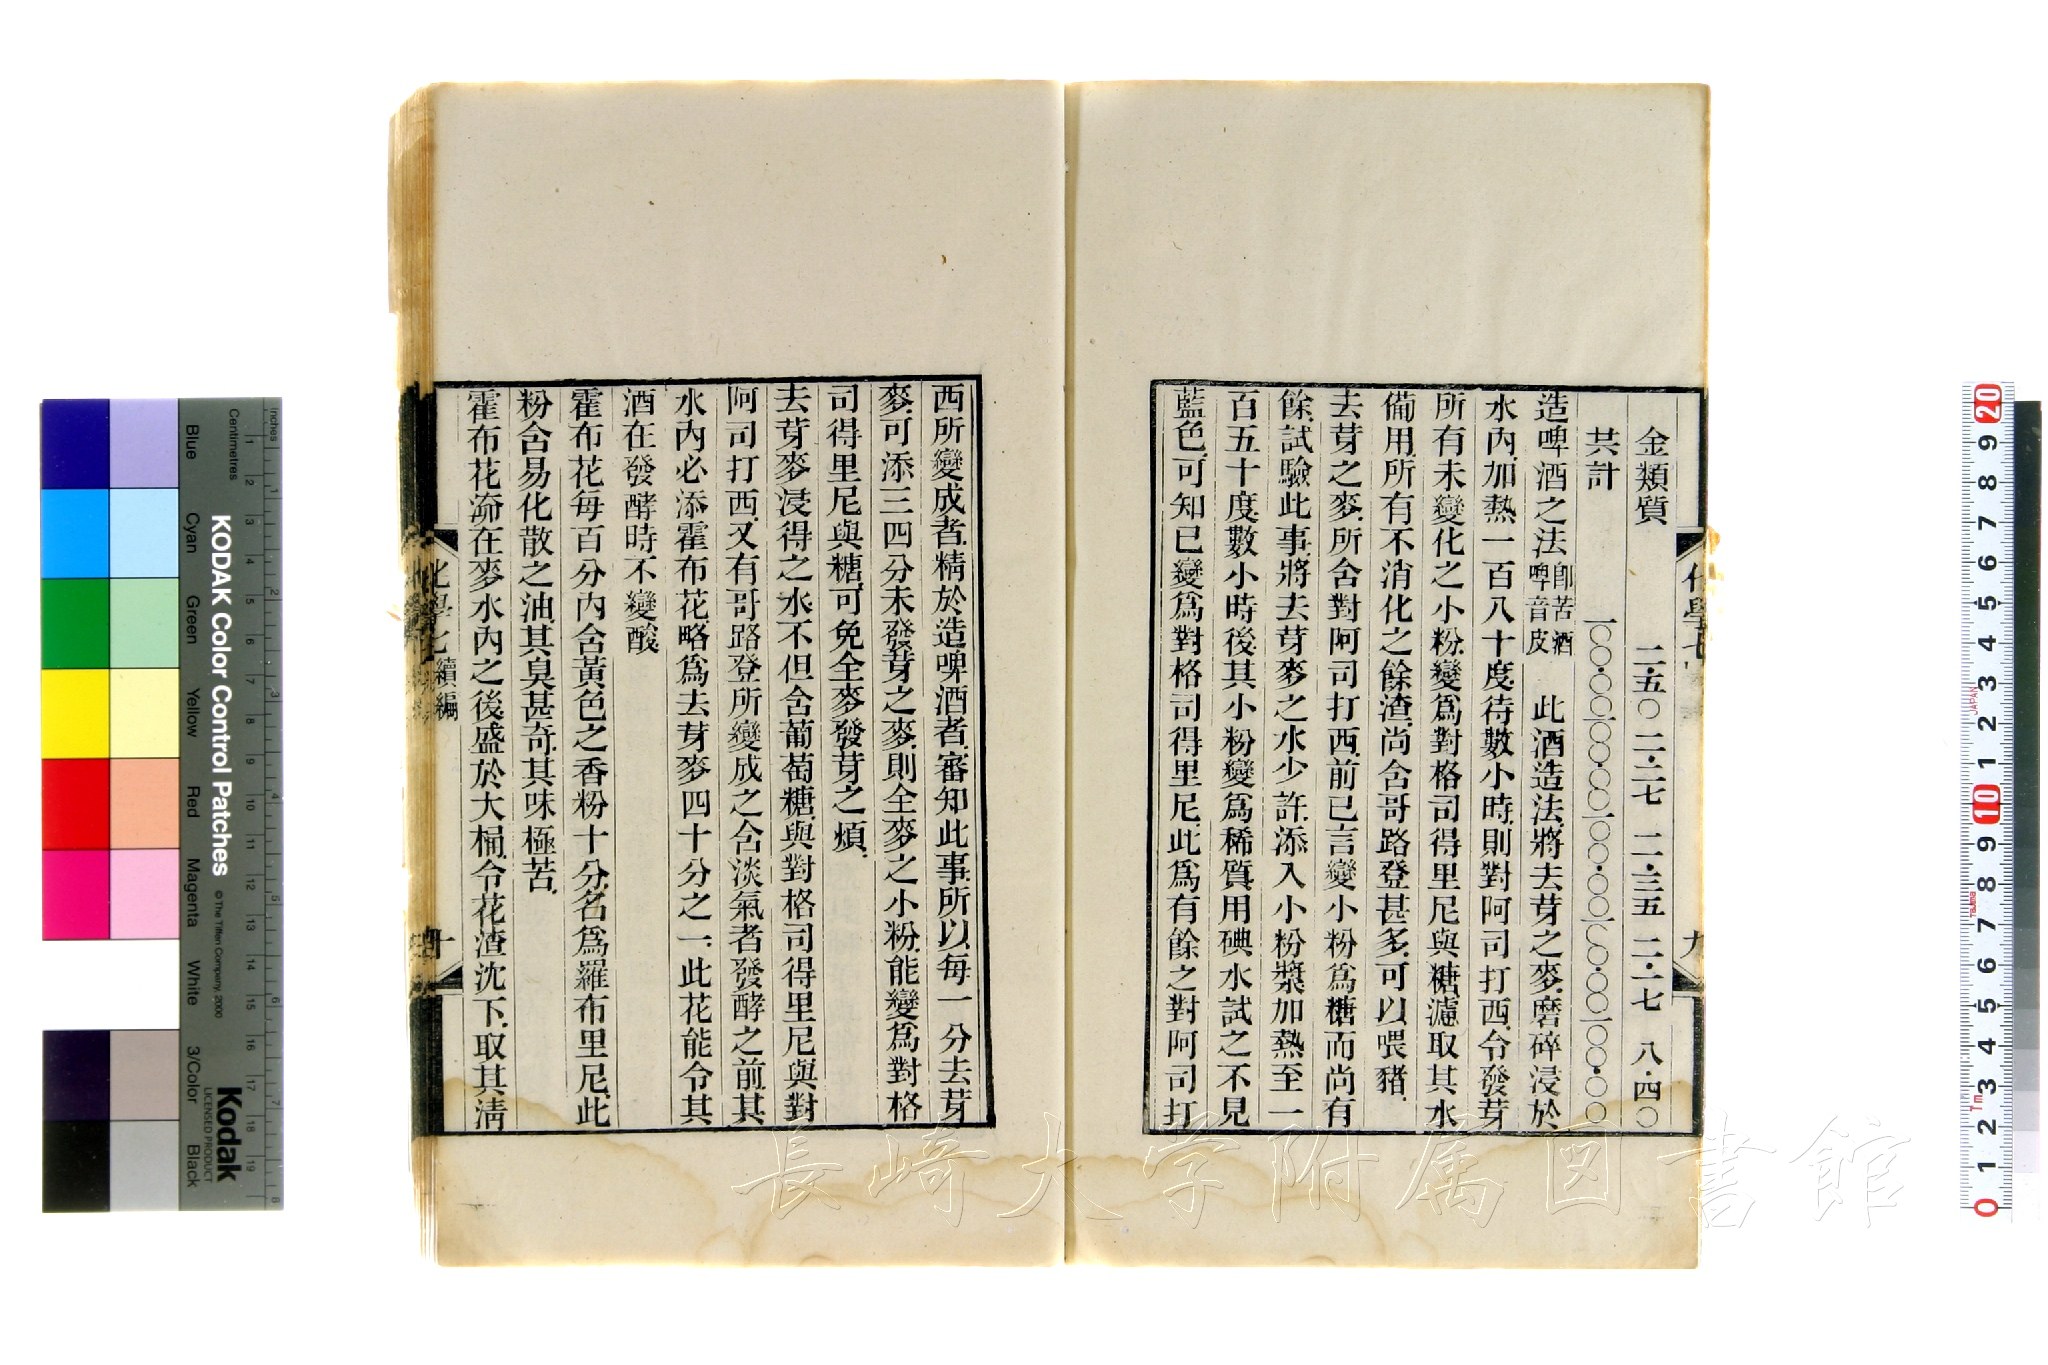 金類質　二·五〇　二·二七　二·三五　二·一七　八·四〇
共計　一〇〇·〇〇　一〇〇·〇〇　一〇〇·〇〇　一〇〇·〇〇　一〇〇·〇〇
造啤酒之法即苦酒啤音皮　此酒造法將去芽之麥磨碎浸於
水內加熱一百八十度待數小時則對阿司打西令發芽
所有未變化之小粉變爲對格司得里尼與糖濾取其水
備用所有不消化之餘渣尚含哥路登甚多可以喂豬
去芽之麥所含對阿司打西前已言變小粉爲糖而尚有
餘試驗此事將去芽麥之水少許添入小粉漿加熱至一
百五十度數小時後其小粉變爲稀質用碘水試之不見
藍色可知已變爲對格司得里尼此爲有餘之對阿司打
九
西所變成者精於造啤酒者審知此事所以每一分去芽
麥可添三四分未發芽之麥則全麥之小粉能變爲對格
司得里尼與糖可免全麥發芽之煩
去芽麥浸得之水不但含葡萄糖與對格司得里尼與對
阿司打西又有哥路登所變成之含淡氣者發酵之前其
水內必添霍布花略爲去芽麥四十分之一此花能令其
酒在發酵時不變酸
霍布花每百分內含黃色之香粉十分名爲羅布里尼此
粉含易化散之油其臭甚奇其味極苦
霍布花流在麥水內之後盛於大桶令花渣沈下取其清
化學七 續編
十
長崎大学附属図書館
KODAK Color Control Patches
© The Tiffen Company, 2000
Kodak
LICENSED PRODUCT
Inches
Centimetres
Blue Cyan Green Yellow Red Magenta White 3/Color Black